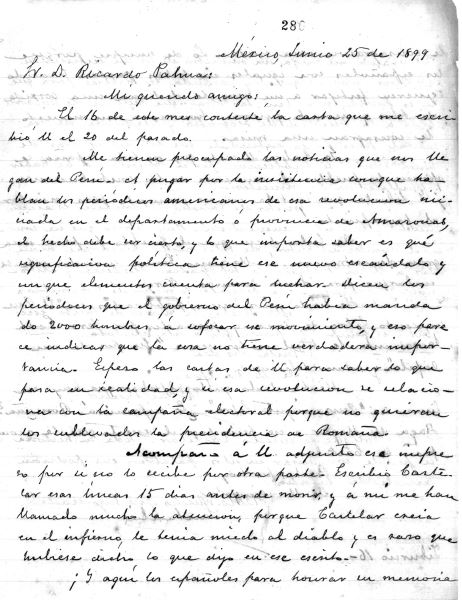 286
México, Junio 25 de 1899
Sr. D. Ricardo Palma:
Mi querido amigo:
El 16 de este mes contesté la carta que me escri
bió U el 20 del pasado.
Me tienen preocupado las noticias que nos lle
gan del Perú. A juzgar por la insistencia con que ha
blan los periódicos americanos de esa revolucion ini
ciada en el departamento ó provincia de Amazonas,
el hecho debe ser cierto, y lo que importa saber es qué
significacion política tiene ese nuevo escándalo y
con que elementos cuenta para luchar. Dicen los
periódicos que el gobierno del Perú habia manda
do 2000 hombres á sofocar ese movimiento, y eso pare
ce indicar que la cosa no tiene verdadera impor-
tancia. Espero las cartas de U para saber lo que
pasa en realidad, y si esa revolucion se relacio-
na con la campaña electoral porque no quieran
los sublevados la presidencia de Romaña.
Acompaño á U adjunto ese impre
so por si no lo recibe por otra parte. Escribió Caste
lar esas líneas 15 dias antes de morir, y á mí me han
llamado mucho la atencion, porque Castelar creia
en el infierno, le tenia miedo al diablo y es raro que
hubiese dicho lo que dijo en ese escrito.
¡Y aquí los españoles para honrar su memoria